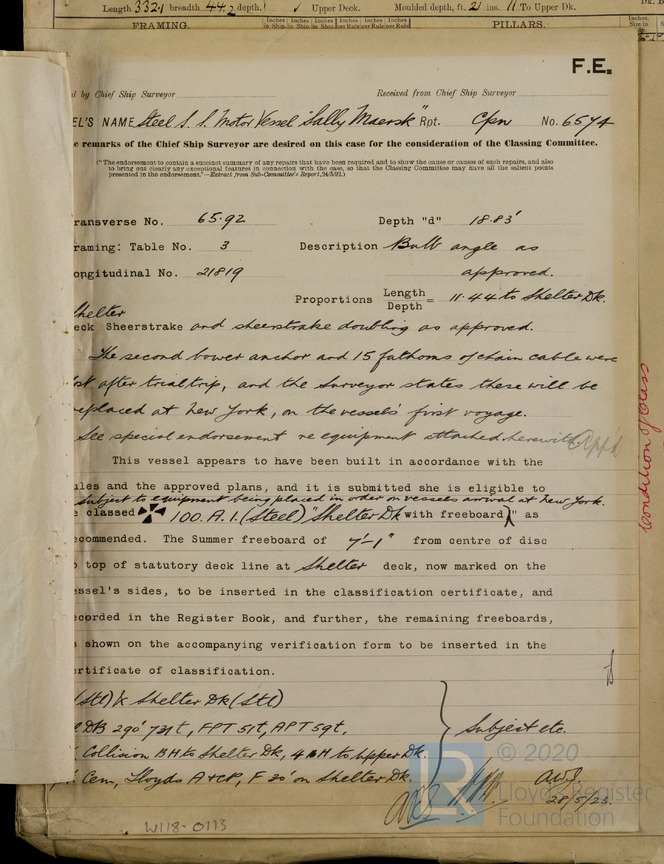 Length 332.1 breadth 44.2 depth ✓ Upper Deck. Moulded depth, ft. 21 ins. 11 To Upper Dk.
FRAMING. PILLARS.
F.E.
d by Chief Ship Surveyor Received from Chief Ship Surveyor
EL'S NAME Steel S. S. Motor Vessel "Sally Maersk" Rpt. Cpn No. 6574
e remarks of the Chief Ship Surveyor are desired on this case for the consideration of the Classing Committee.
("The endorsement to contain a succinct summary of any repairs that have been required and to show the cause or causes of such repairs, and also
to bring out clearly any exceptional features in connection with the case, so that the Classing Committee may have all the salient points
presented in the endorsement."—Extract from Sub-Committee's Report, 24/5/92.)
ransverse No. 65.92 Depth "d" 18.83'
raming: Table No. 3 Description Bulb angle as
ongitudinal No. 21819 approved.
Proportions Length/Depth = 11.44 to Shelter Dk.
Shelter
eck Sheerstrake and sheerstrake doubling as approved.
The second bower anchor and 15 fathoms of chain cable were
st after trial trip, and the Surveyor states these will be
eplaced at New York, on the vessels' first voyage.
See special endorsement re equipment attached herewith App'd
This vessel appears to have been built in accordance with the
ules and the approved plans, and it is submitted she is eligible to
Subject to equipment being placed in order on vessels arrival at New York.
e classed ✠ 100.A.1.(Steel) "Shelter Dk with freeboard)" as
ecommended. The Summer freeboard of 7'-1" from centre of disc
o top of statutory deck line at Shelter deck, now marked on the
essel's sides, to be inserted in the classification certificate, and
ecorded in the Register Book, and further, the remaining freeboards,
s shown on the accompanying verification form to be inserted in the
ertificate of classification.
(Stl) & Shelter Dk (Stl)
DB 290' 731t, FPT 51t, APT 59t, Subject etc.
Collision BH to Shelter Dk, 4 BH to Upper Dk.
Cem, Lloyds A & CP, F 20' on Shelter Dk.
28/5/23.
Condition of Class
W118-0113
© 2020
LR
Lloyd's Register
Foundation